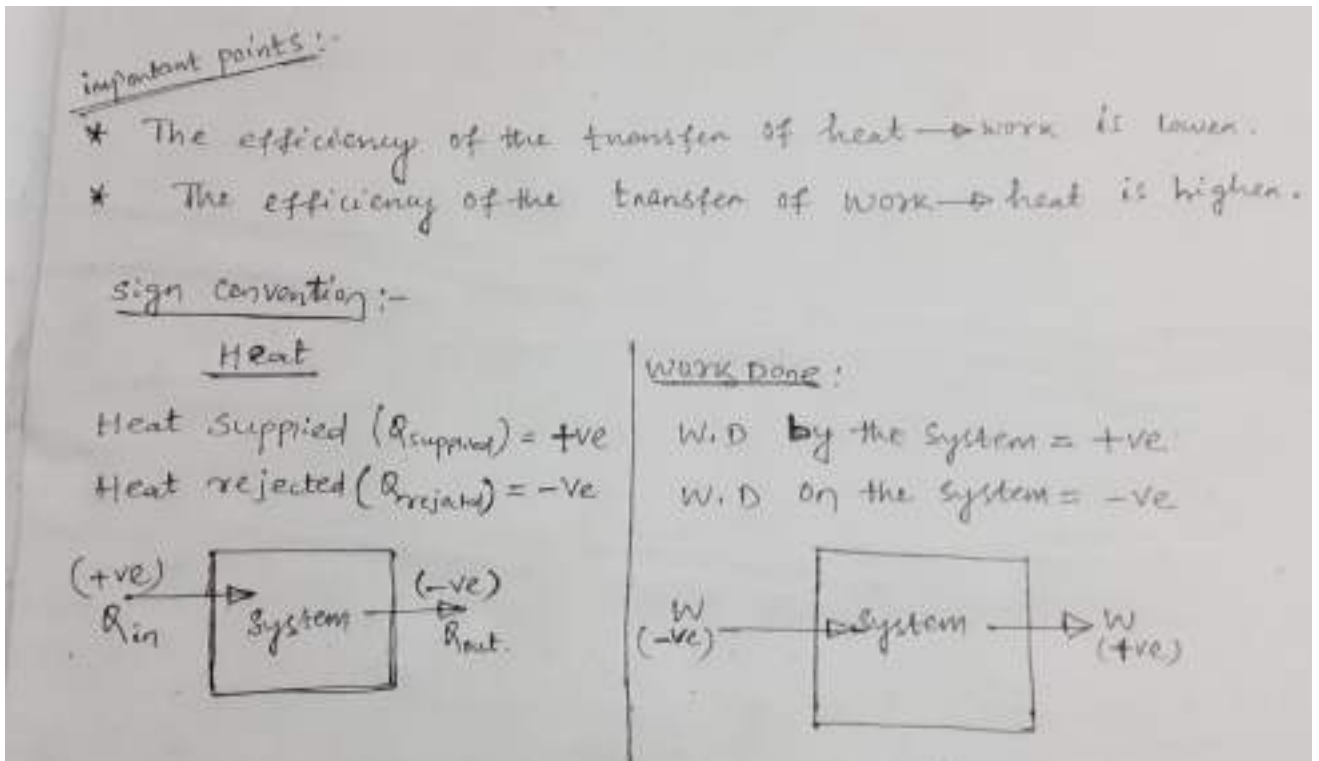 important points :-
* The efficiency of the transfer of heat → work is lower.
* The efficiency of the transfer of work → heat is higher.
sign convention :-
Heat
Heat supplied (Qsupplied) = +ve
Heat rejected (Qrejected) = -ve
(+ve)
Qin
System
(-ve)
Qout.
Work Done :
W.D by the system = +ve
W.D on the system = -ve
W
(-ve)
System
W
(+ve)